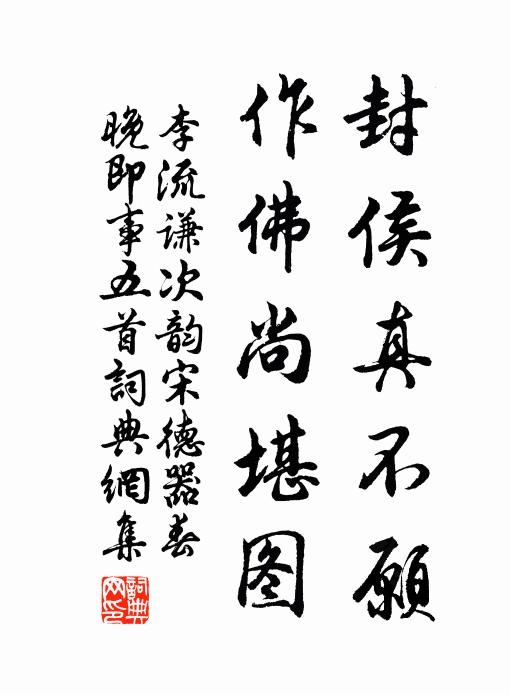 封侯真不愿
作佛尚堪图
李流谦次韵宋德器春
晚即事五首詞典網集
詞典
网印